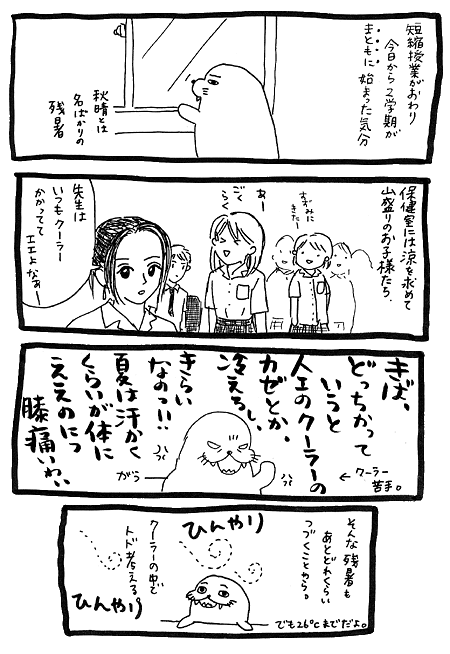 短縮授業がおわり
今日から2学期が
まともに始まった気分
秋晴とは
名ばかりの
残暑
保健室には涼を求めて
山盛りのお子様たち、
すずみに
きたー
あー
ごく
らく
先生は
いつもクーラー
かかってて
エエよなぁー
きば、
どっちかって
いうと
人工のクーラーの
カゼとか、
冷えるし、
きらい
なのっ!!
夏は汗かく
くらいが体に
ええのにっ
膝痛いわい
←クーラー
苦手。
がう
そんな残暑も
あとどれくらい
つづくことやら。
ひんやり
クーラーの中で
トド考える。
ひんやり
でも26℃までだよ。